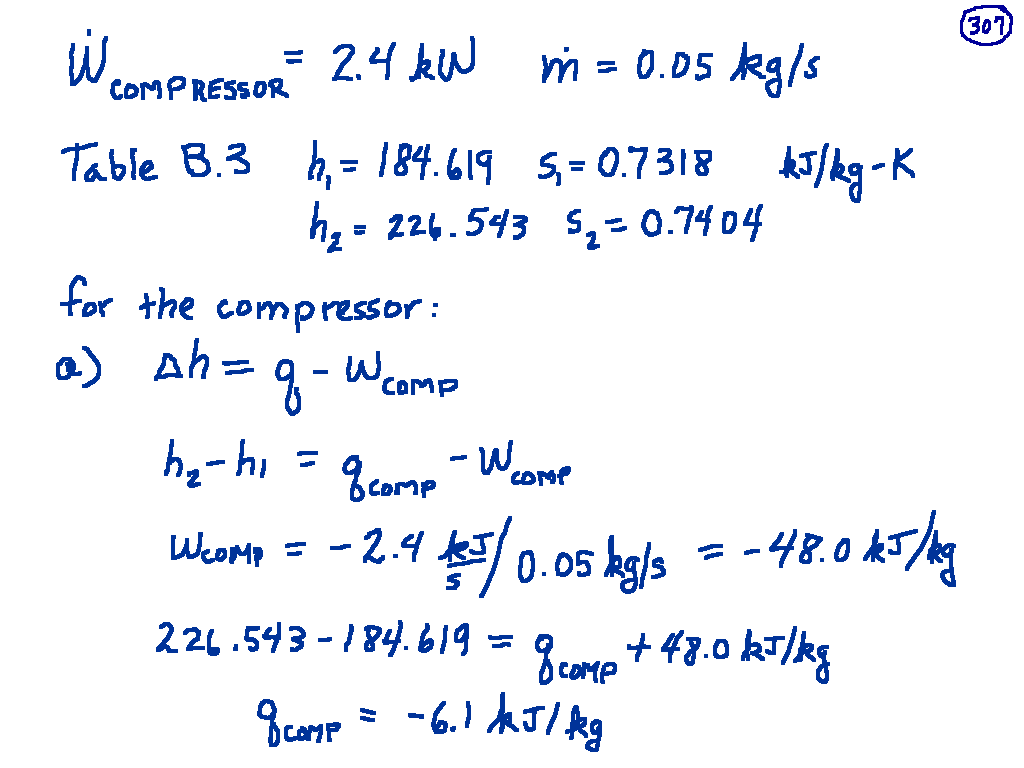 307
Ẇ_COMPRESSOR = 2.4 kW ṁ = 0.05 kg/s
Table B.3 h₁ = 184.619 s₁ = 0.7318 kJ/kg-K
h₂ = 226.543 s₂ = 0.7404
for the compressor:
a) Δh = q - w_COMP
h₂ - h₁ = q_COMP - w_COMP
w_COMP = -2.4 kJ/s / 0.05 kg/s = -48.0 kJ/kg
226.543 - 184.619 = q_COMP + 48.0 kJ/kg
q_COMP = -6.1 kJ/kg